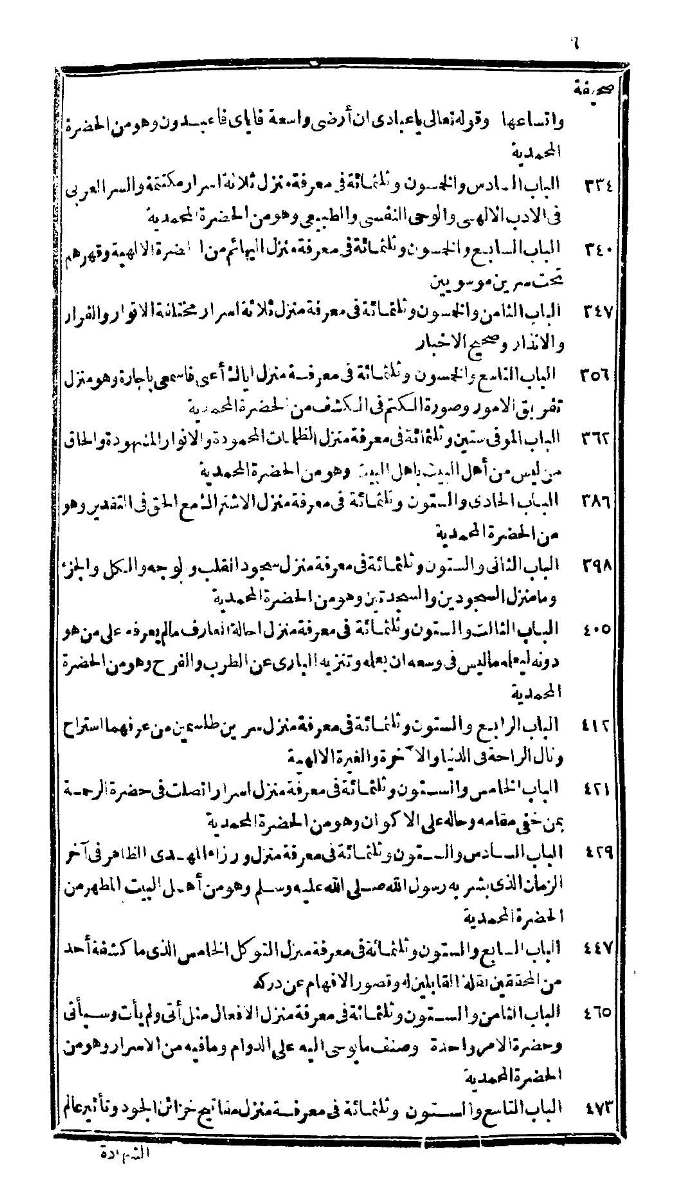 ٦
صحيفة
واتساعها وقوله تعالى ياعبادى ان أرضى واسعة فاياى فاعبدون وهو من الحضرة
المحمدية
٣٣٤ الباب السادس والخمسون وثلثمائة فى معرفة منزل ثلاثة اسرار مكتتمة والسر العربى
فى الادب الالهى والوحى النفسى والطبيعى وهو من الحضرة المحمدية
٣٤٠ الباب السابع والخمسون وثلثمائة فى معرفة منزل البهائم من الحضرة الالهية وقهرهم
تحت سرين موسويين
٣٤٧ الباب الثامن والخمسون وثلثمائة فى معرفة منزل ثلاثة اسرار مختلفة الانوار والفرار
والانذار وصحيح الاخبار
٣٥٦ الباب التاسع والخمسون وثلثمائة فى معرفة منزل اياك أعنى فاسمعى ياجارة وهو منزل
تفريق الامور وصورة الكتم فى الكشف من الحضرة المحمدية
٣٦٢ الباب الموفى ستين وثلثمائة فى معرفة منزل الظلمات المحمودة والانوار المشهودة والحاق
من ليس من أهل البيت باهل البيت وهو من الحضرة المحمدية
٣٨٦ الباب الحادى والستون وثلثمائة فى معرفة منزل الاشتراك مع الحق فى التقدير وهو
من الحضرة المحمدية
٣٩٨ الباب الثانى والستون وثلثمائة فى معرفة منزل سجود القلب والوجه والكل والجزء
وما منزل السجودين والسجدتين وهو من الحضرة المحمدية
٤٠٥ الباب الثالث والستون وثلثمائة فى معرفة منزل احالة العارف مالم يعرفه على من هو
دونه ليعلمه ماليس فى وسعه ان يعلمه وتنزيه البارى عن الطرب والفرح وهو من الحضرة
المحمدية
٤١٢ الباب الرابع والستون وثلثمائة فى معرفة منزل سرين طلسمين من عرفهما استراح
ونال الراحة فى الدنيا والآخرة والغيرة الالهية
٤٢١ الباب الخامس والستون وثلثمائة فى معرفة منزل اسرار اتصلت فى حضرة الرحمة
بمن خفى مقامه وحاله على الاكوان وهو من الحضرة المحمدية
٤٢٩ الباب السادس والستون وثلثمائة فى معرفة منزل وزراء المهدى الظاهر فى آخر
الزمان الذى بشر به رسول الله صلى الله عليه وسلم وهو من أهل البيت المطهر من
الحضرة المحمدية
٤٤٧ الباب السابع والستون وثلثمائة فى معرفة منزل التوكل الخامس الذى ما كشفه أحد
من المحققين لقلة القابلين له وقصور الافهام عن دركه
٤٦٥ الباب الثامن والستون وثلثمائة فى معرفة منزل الافعال مثل أتى ولم يأت وسيأتى
وحضرة الامر واحدة وصنف ما يوحى اليه على الدوام ومافيه من الاسرار وهو من
الحضرة المحمدية
٤٧٣ الباب التاسع والستون وثلثمائة فى معرفة منزل مفاتيح خزائن الجود وتأثير عالم
الشهادة